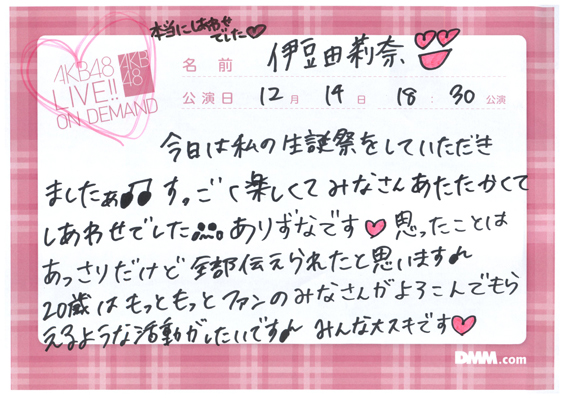 本当にしあわせ
でした♡
AKB48
LIVE!!
ON DEMAND
AKB
48
名前 伊豆田莉奈
公演日 12月 14日 18:30公演
今日は私の生誕祭をしていただき
ましたぁ♫♫ すっごく楽しくてみなさんあたたかくて
しあわせでした ありずなです♡ 思ったことは
あっさりだけど全部伝えられたと思います♪
20歳はもっともっとファンのみなさんがよろこんでもら
えるような活動がしたいです♪ みんな大スキです♡
DMM.com